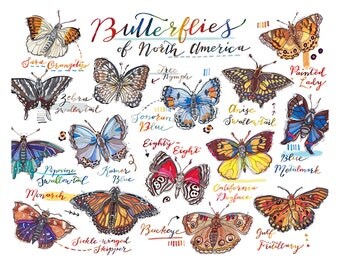 Butterflies
of North America
Sara Orangetip
Tree
Nymph
Painted
Lady
Zebra
Swallowtail
Sonoran
Blue
Anise
Swallowtail
Pipevine
Swallowtail
Karner
Blue
Eighty-
Eight
Blue
Metalmark
Monarch
California
Dogface
Sickle-winged
Skipper
Buckeye
Gulf
Fritillary